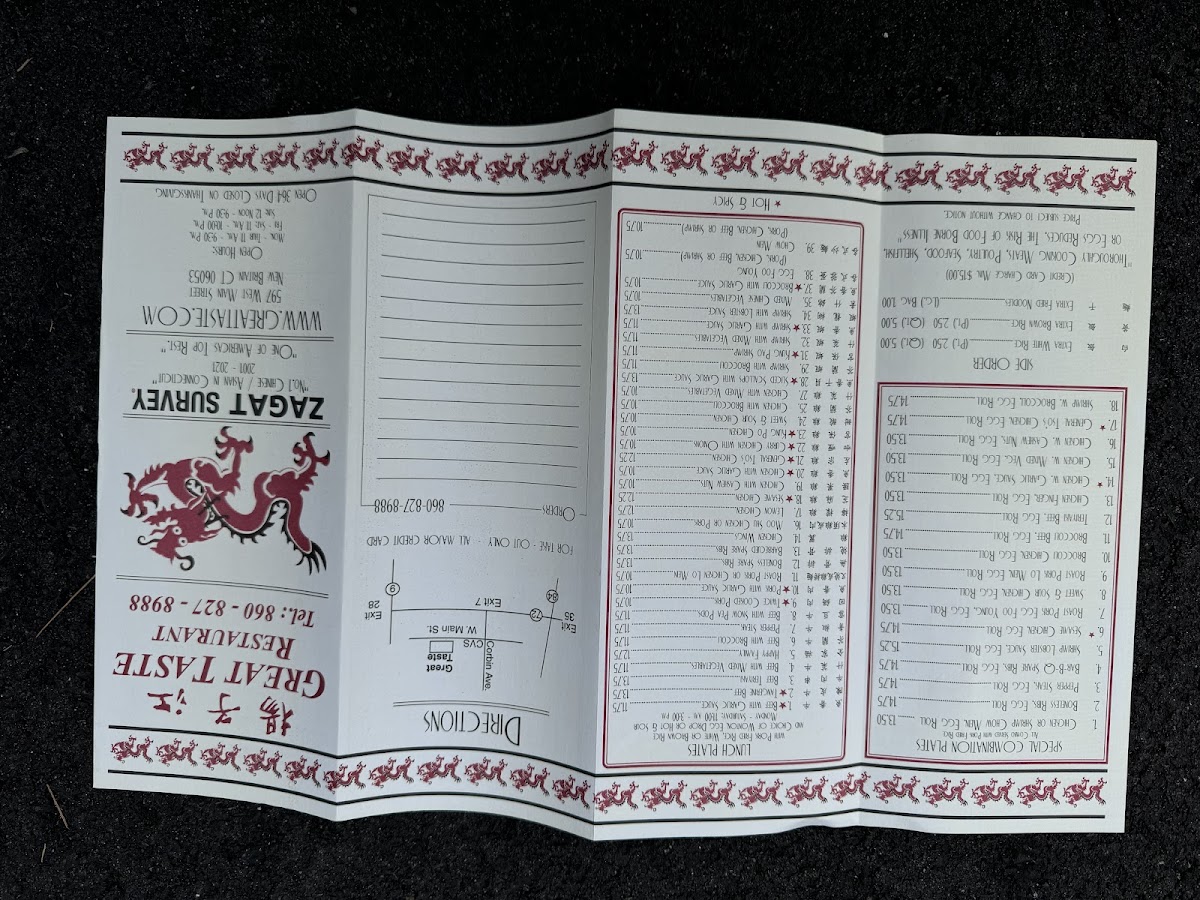 SPECIAL COMBINATION PLATES
All Combo Served with Pork Fried Rice
1. Chicken or Shrimp Chow Mein, Egg Roll 13.50
2. Boneless Ribs, Egg Roll 14.75
3. Pepper Steak, Egg Roll 14.75
4. Bar-B-Q Spare Ribs, Egg Roll 14.75
5. Shrimp Lobster Sauce, Egg Roll 15.25
★ 6. Sesame Chicken, Egg Roll 14.75
7. Roast Pork Egg Foo Young, Egg Roll 13.50
8. Sweet & Sour Chicken, Egg Roll 13.50
9. Roast Pork Lo Mein, Egg Roll 13.50
10. Broccoli Chicken, Egg Roll 13.50
11. Broccoli Beef, Egg Roll 14.75
12. Teriyaki Beef, Egg Roll 15.25
13. Chicken Finger, Egg Roll 13.50
★ 14. Chicken w. Garlic Sauce, Egg Roll 13.50
15. Chicken w. Mixed Veg. Egg Roll 13.50
16. Chicken w. Cashew Nuts, Egg Roll 13.50
★ 17. General Tso's Chicken, Egg Roll 14.75
18. Shrimp w. Broccoli, Egg Roll 14.75
SIDE ORDER
白飯 Extra White Rice (Pt.) 2.50 (Qt.) 5.00
黃飯 Extra Brown Rice (Pt.) 2.50 (Qt.) 5.00
麵干 Extra Fried Noodles (Lg. Bag) 1.00
(Credit Card Charge Min. $15.00)
"Thoroughly Cooking Meats, Poultry, Seafood, Shellfish,
or Eggs Reduces The Risk of Food Borne Illness"
Price subject to change without notice
LUNCH PLATES
with Pork Fried Rice, White or Brown Rice
and Choice of Wonton, Egg Drop or Hot & Sour
Monday - Saturday: 11:00 a.m. - 3:00 p.m.
魚香牛 ★ 1. Beef with Garlic Sauce 11.75
陳皮牛 ★ 2. Tangerine Beef 13.75
牛肉串 3. Beef Teriyaki 11.75
什菜牛 4. Beef with Mixed Vegetables 11.75
全家福 5. Happy Family 12.75
芥蘭牛 6. Beef with Broccoli 11.75
青椒牛 7. Pepper Steak 11.75
雪豆牛 8. Beef with Snow Pea Pods 11.75
回鍋肉 ★ 9. Twice Cooked Pork 10.75
魚香肉 ★ 10. Pork with Garlic Sauce 10.75
叉燒或雞撈麵 11. Roast Pork or Chicken Lo Mein 10.75
無骨排 12. Boneless Spare Ribs 11.75
燒排骨 13. Barbecued Spare Ribs 11.75
雞翼 14. Chicken Wings
木須雞或肉 16. Moo Shu Chicken or Pork 10.75
檸檬雞 17. Lemon Chicken 10.75
芝麻雞 ★ 18. Sesame Chicken 12.25
腰果雞 19. Chicken with Cashew Nuts 10.75
魚香雞 ★ 20. Chicken with Garlic Sauce 10.75
左宗雞 ★ 21. General Tso's Chicken 12.25
咖喱雞 ★ 22. Curry Chicken with Onion 10.75
宮保雞 ★ 23. Kung Po Chicken 10.75
甜酸雞 24. Sweet & Sour Chicken 10.75
芥蘭雞 25. Chicken with Broccoli 10.75
什菜雞 27. Chicken with Mixed Vegetables 10.75
魚香干貝 ★ 28. Sliced Scallops with Garlic Sauce 13.75
芥蘭蝦 29. Shrimp with Broccoli 11.75
宮保蝦 ★ 31. Kung Pao Shrimp 11.75
什菜蝦 32. Shrimp with Mixed Vegetables 11.75
魚香蝦 ★ 33. Shrimp with Garlic Sauce 11.75
蝦龍糊 34. Shrimp with Lobster Sauce 13.75
素什錦 35. Mixed Chinese Vegetables 10.75
魚香芥蘭 ★ 37. Broccoli with Garlic Sauce 10.75
各式蓉蛋 38. Egg Foo Young
(Pork, Chicken, Beef or Shrimp) 10.75
各式炒麵 39. Chow Mein
(Pork, Chicken, Beef or Shrimp) 10.75
★ Hot & Spicy
DIRECTIONS
Great
Taste
Corbin Ave.
CVS
W. Main St.
Exit
35
72
84
Exit 7
9
Exit
28
FOR TAKE - OUT ONLY - ALL MAJOR CREDIT CARD
ORDERS 860-827-8988
揚子江
GREAT TASTE
RESTAURANT
Tel.: 860 - 827 - 8988
ZAGAT SURVEY®
"No.1 Chinese / Asian in Connecticut"
2001 - 2021
"One of America's Top Rest."
WWW.GREATTASTE.COM
597 West Main Street
New Britain CT 06053
Open Hours:
Mon - Thur 11 Am. - 9:30 Pm.
Fri - Sat 11 Am. - 10:00 Pm.
Sun. 12 Noon - 9:30 Pm.
Open 364 Days Closed on Thanksgiving